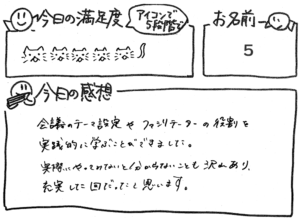 今日の満足度
アイコンで
5段階で
お名前
5
今日の感想
会議のテーマ設定やファシリテーターの役割を
実践的に学ぶことができました。
実際にやってみないと分からないことも沢山あり、
充実した回だったと思います。